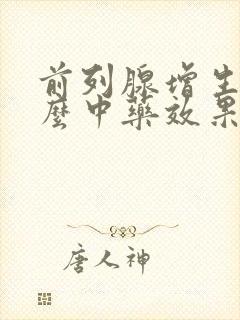 前列腺增生
麼中藥效果
唐人神